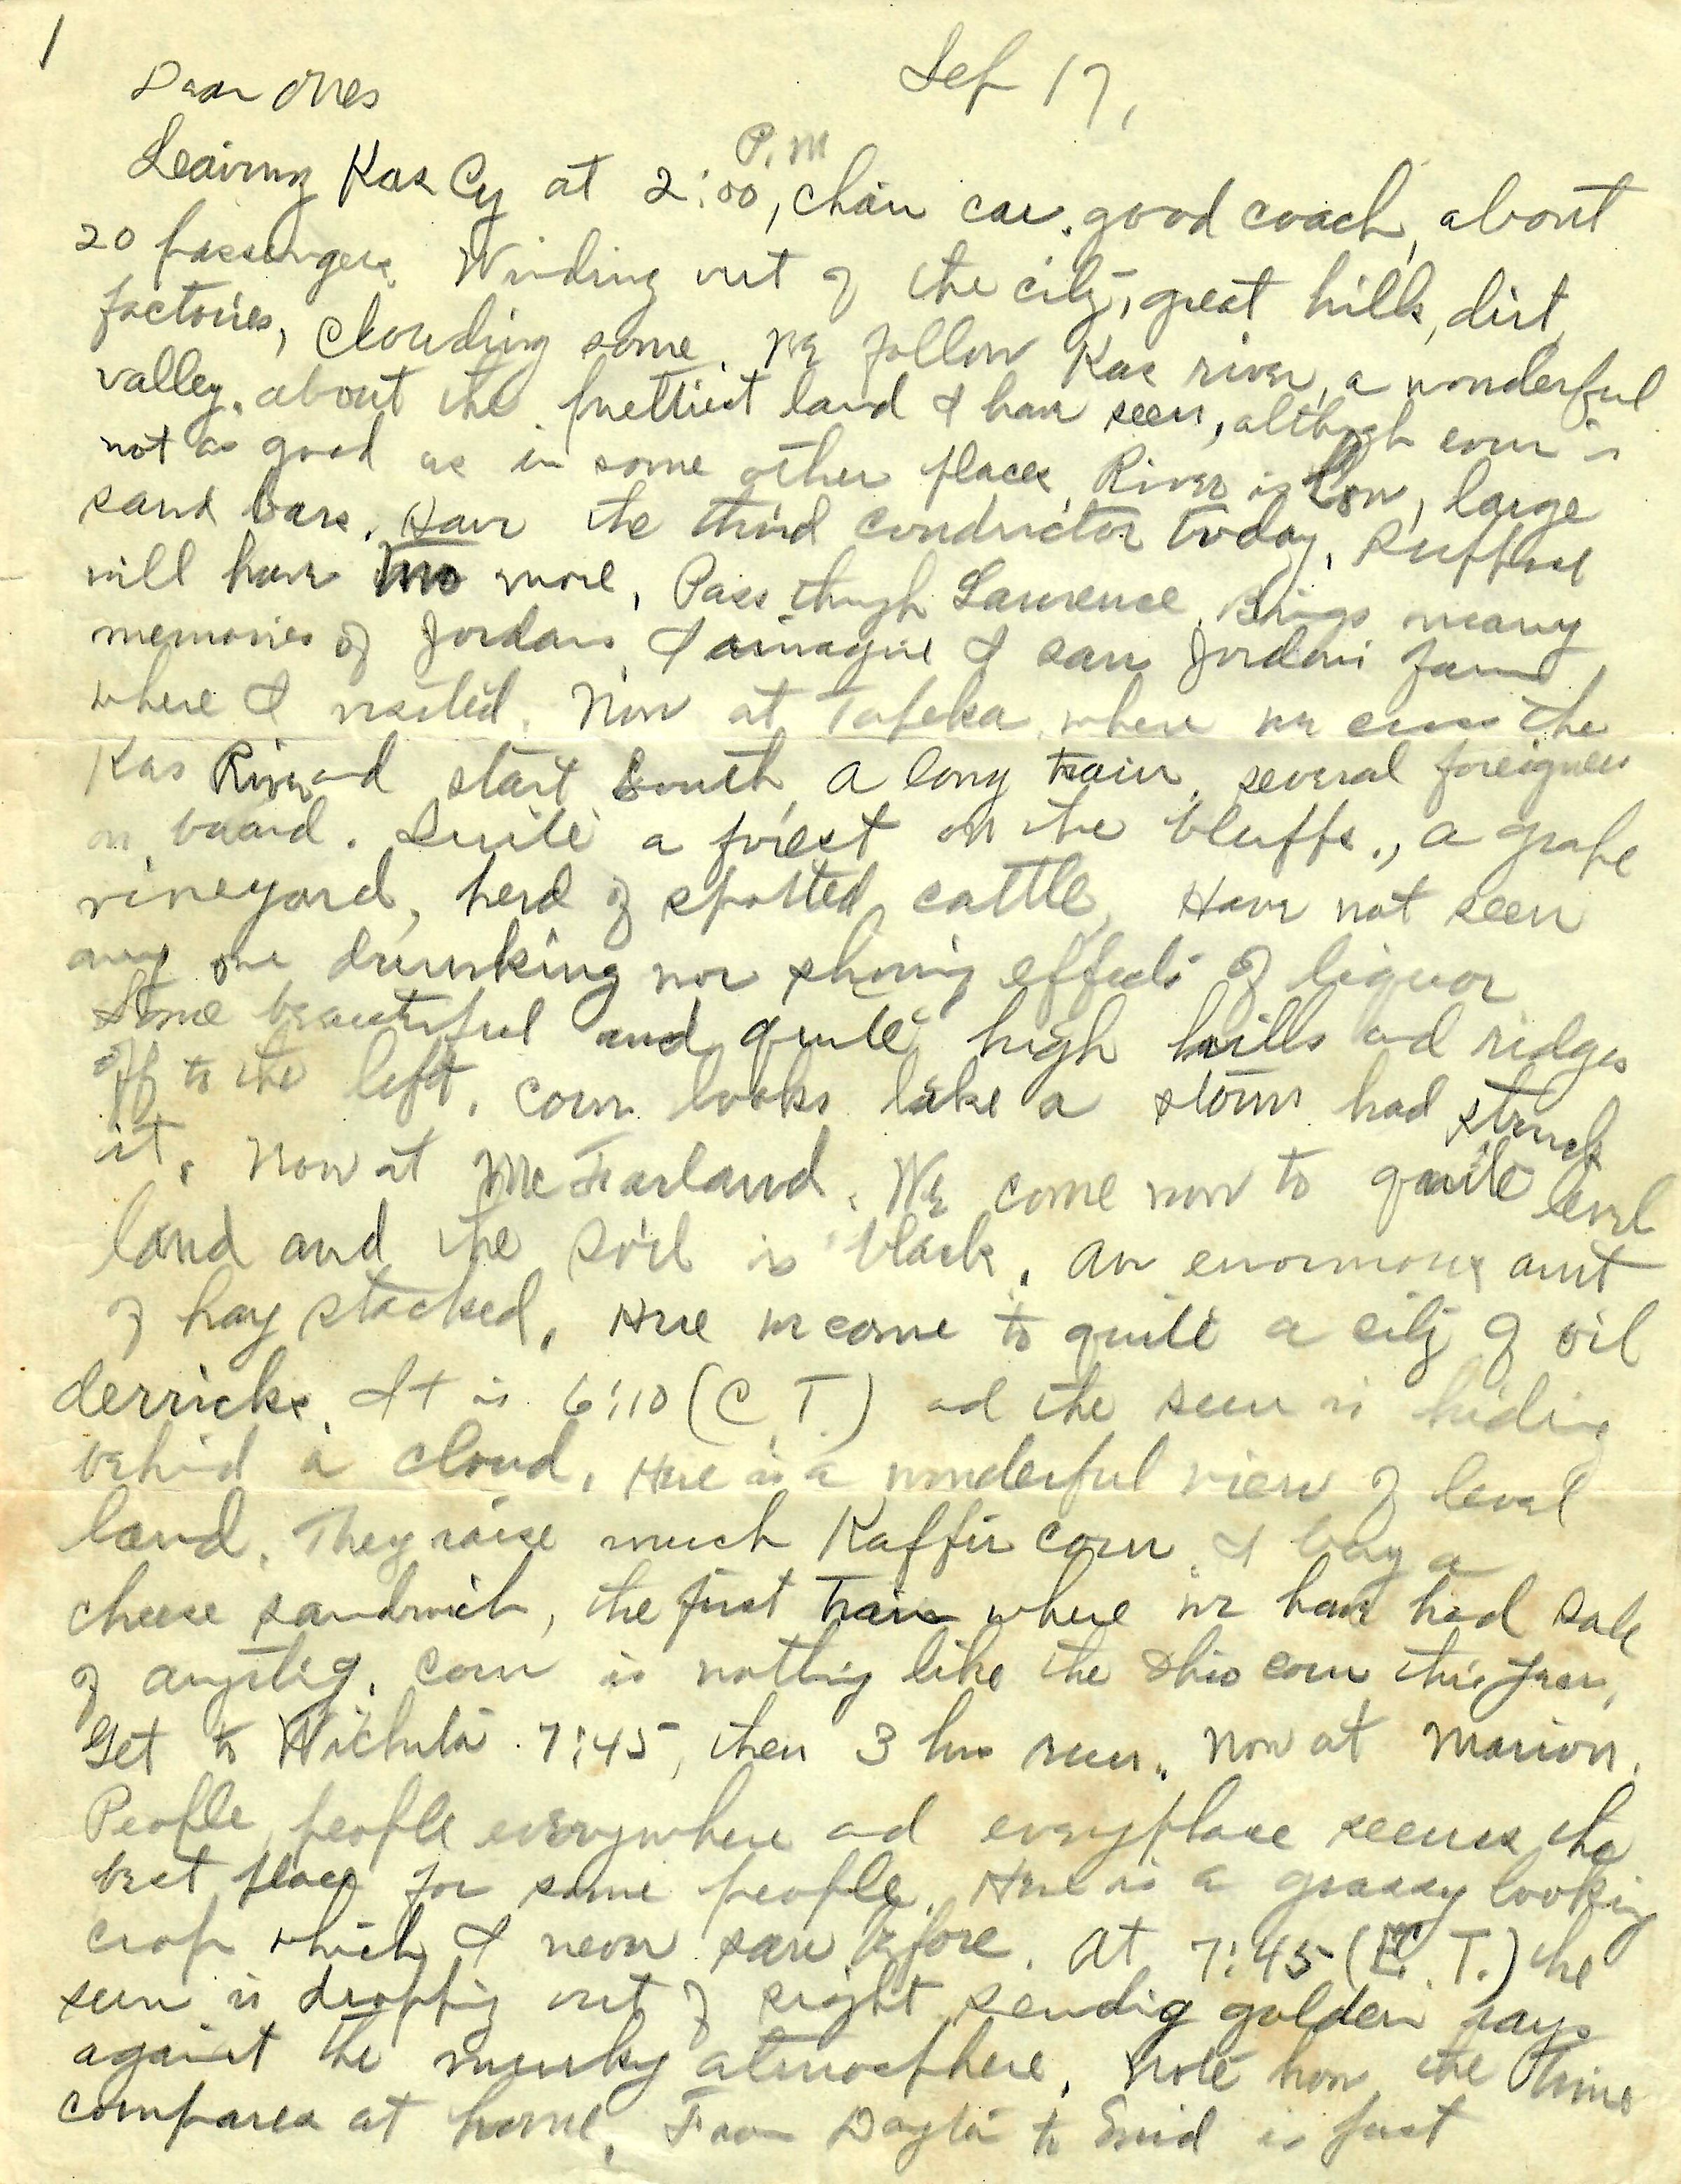 1
Sep 17,
Dear Ones
P.M
Leaving Kas Cy at 2:00, chair car. good coach, about
20 passengers. Winding out of the city, great hills, dirt,
factories, clouding some. We follow Kas river, a wonderful
valley. about the prettiest land I have seen, although corn is
not as good as in some other places. River is Low, large
sand bars. Have the third conductor today, suppose
will have two more, Pass though Lawrence. Brings many
memories of Jordans, I aimagine I saw Jordan farm
where I visited. Now at Topeka where we cross the
Kas River and start South, A long train, several foreigners
on board. Quite a forest on the bluffs., a grape
vineyard, herd of spotted cattle, Have not seen
any one drunking nor showing effects of liquor
Some beautiful and quite high hills ad ridges
off to the left. Corn looks like a storm had struck
it. Now at McFarland. We come now to quite level
land and the soil is black. An enormous amt
of hay stacked. Here we come to quite a city of oil
derricks. It is 6:10 (C.T.) ad the sun is hiding
behind a cloud. Here is a wonderful view of level
land. They raise much Kaffir corn. I buy a
cheese sandwich, the first train where we have had sale
of anything. Corn is nothing like the Ohio corn this year,
Get to Wichita 7:45, then 3 hrs run. Now at Marion.
People, people everywhere ad everyplace seems the
best place for some people. Here is a grassy looking
crop which I never saw before. At 7:45 (E.T.) the
sun is dropping out of sight sending golden rays
against the murky atmosphere. Note how the time
compares at home. From Dayton to Enid is just